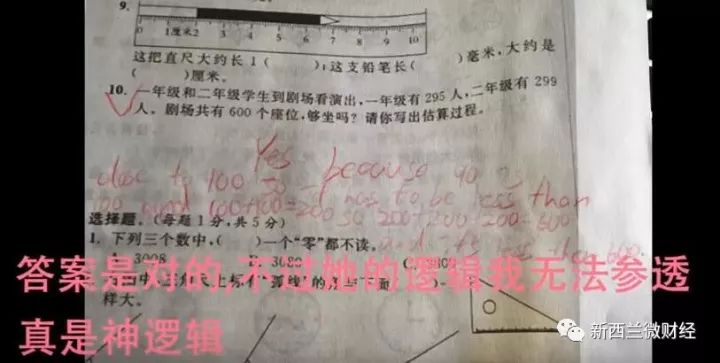 9.
0 1厘米2 3 4 5 6 7 8 9 10
这把直尺大约长 1 ( ); 这支铅笔长 ( ) 毫米, 大约是
( ) 厘米。
10. 一年级和二年级学生到剧场看演出, 一年级有 295 人, 二年级有 299
人。剧场共有 600 个座位, 够坐吗? 请你写出估算过程。
Yes because 90 is
close to 100 so it has to be less than
100 and 100+100=200 so 200+200+200=600
and it's less than 600.
选择题。(每题 1 分, 共 5 分)
1. 下列三个数中, ( ) 一个“零”都不读。
3008 3080
答案是对的,不过她的逻辑我无法参透
真是神逻辑
样大。
新西兰微财经